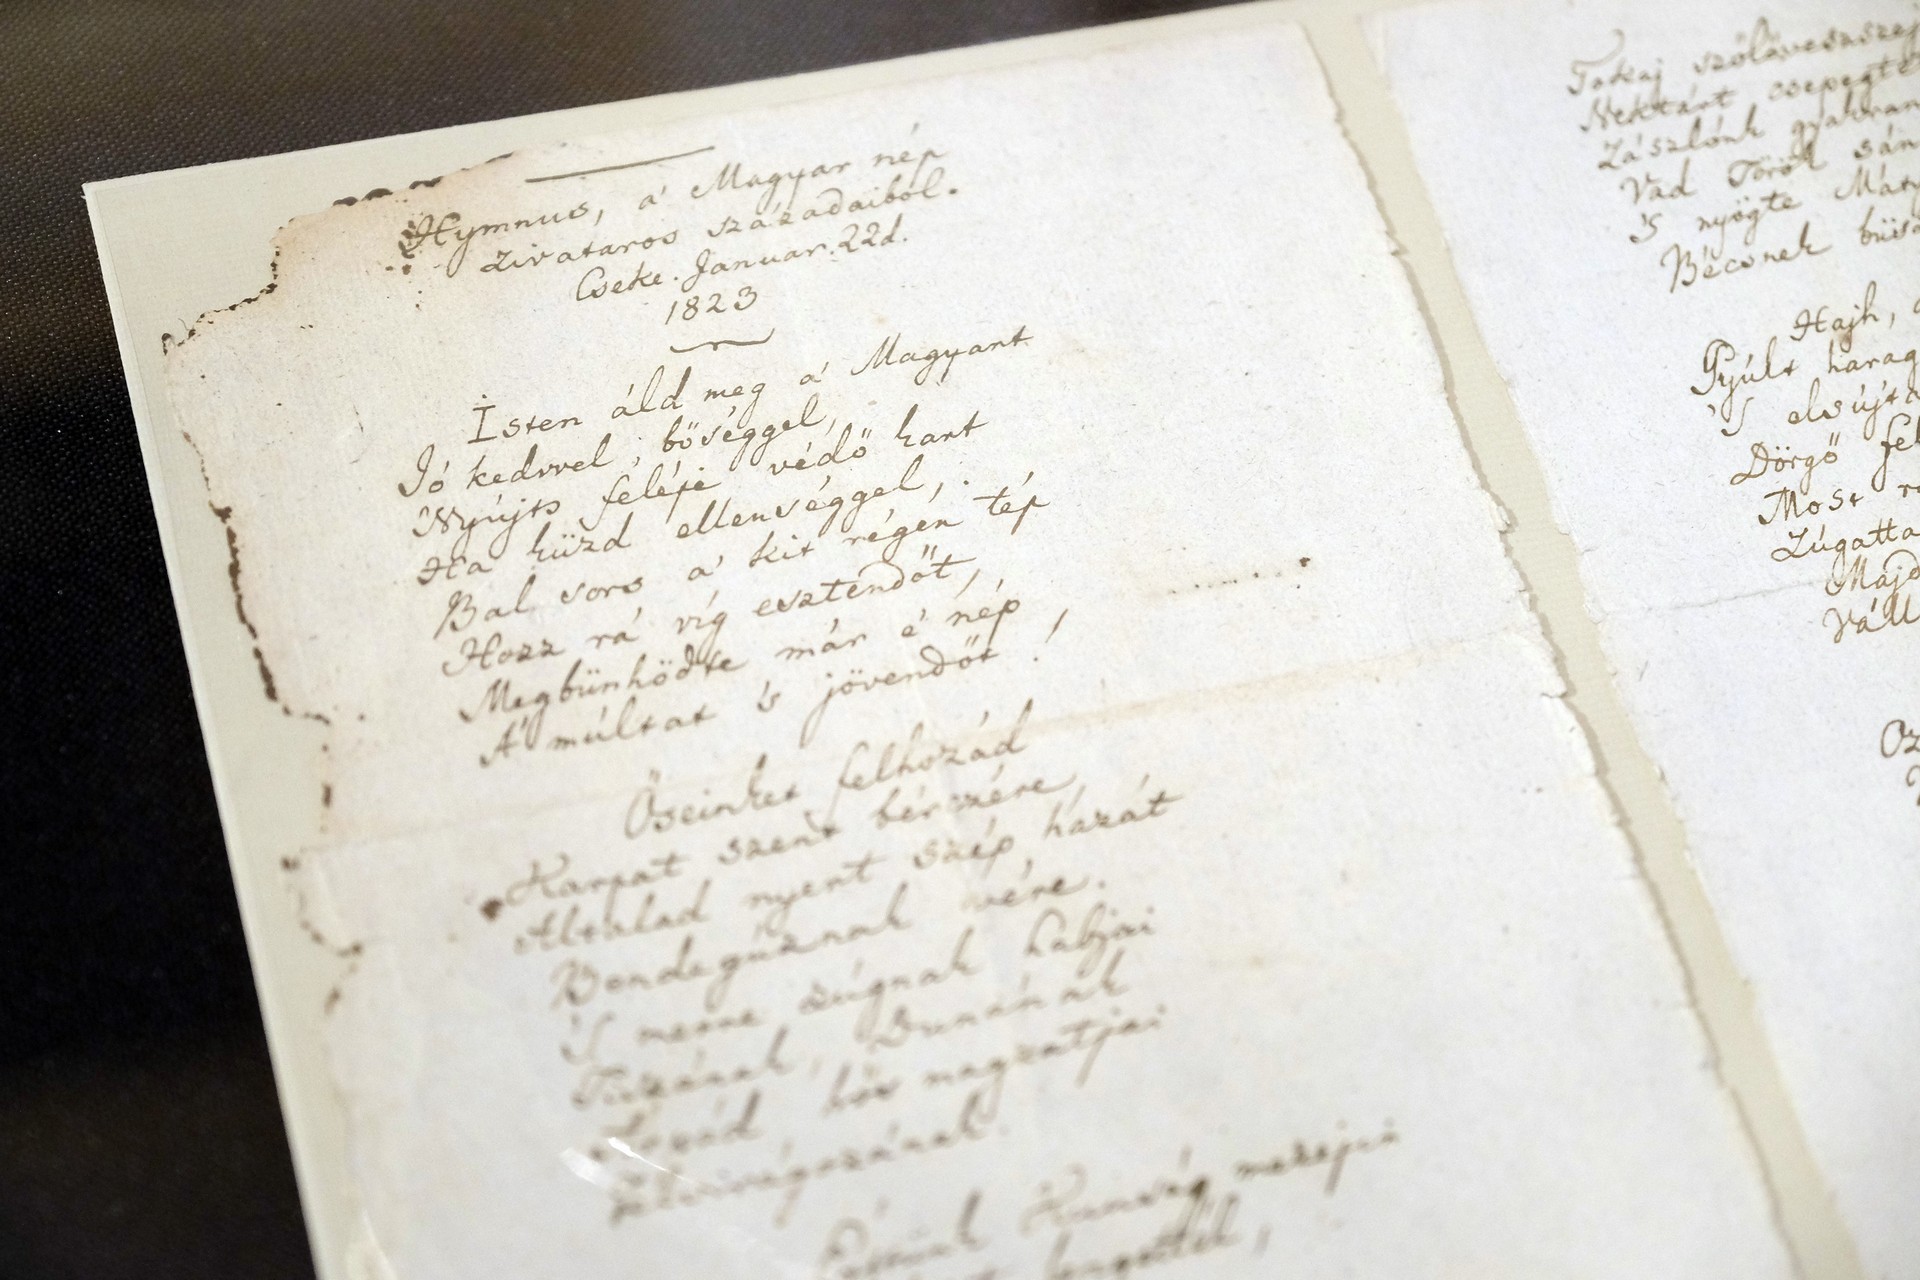 Hymnus, a' Magyar nép
zivataros századaiból.
Cseke. Januar. 22d.
1823
Isten áld meg a' Magyart
Jó kedvvel, bőséggel,
Nyújts feléje védő kart
Ha küzd ellenséggel,
Bal sors a' kit régen tép
Hozz rá víg esztendőt,
Megbünhödte már e' nép
A' múltat 's jövendőt!
Őseinket felhozád
Kárpát szent bérczére,
Általad nyert szép hazát
Bendegúznak vére.
'S merre zúgnak habjai
Tiszának, Dunának
Árpád hős magzatjai
Felvirágozának.
Értünk Kunság mezején
lengettél,
Tokaj szőlővesszej
Nektárt csepegte
Zászlónk gyakran
Vad Török sán
'S nyögte Máty
Bécsnek büsz
Hajh,
Gyúlt harag
'S elsújt
Dörgő fel
Most
Zúgatta
Majd
Váll